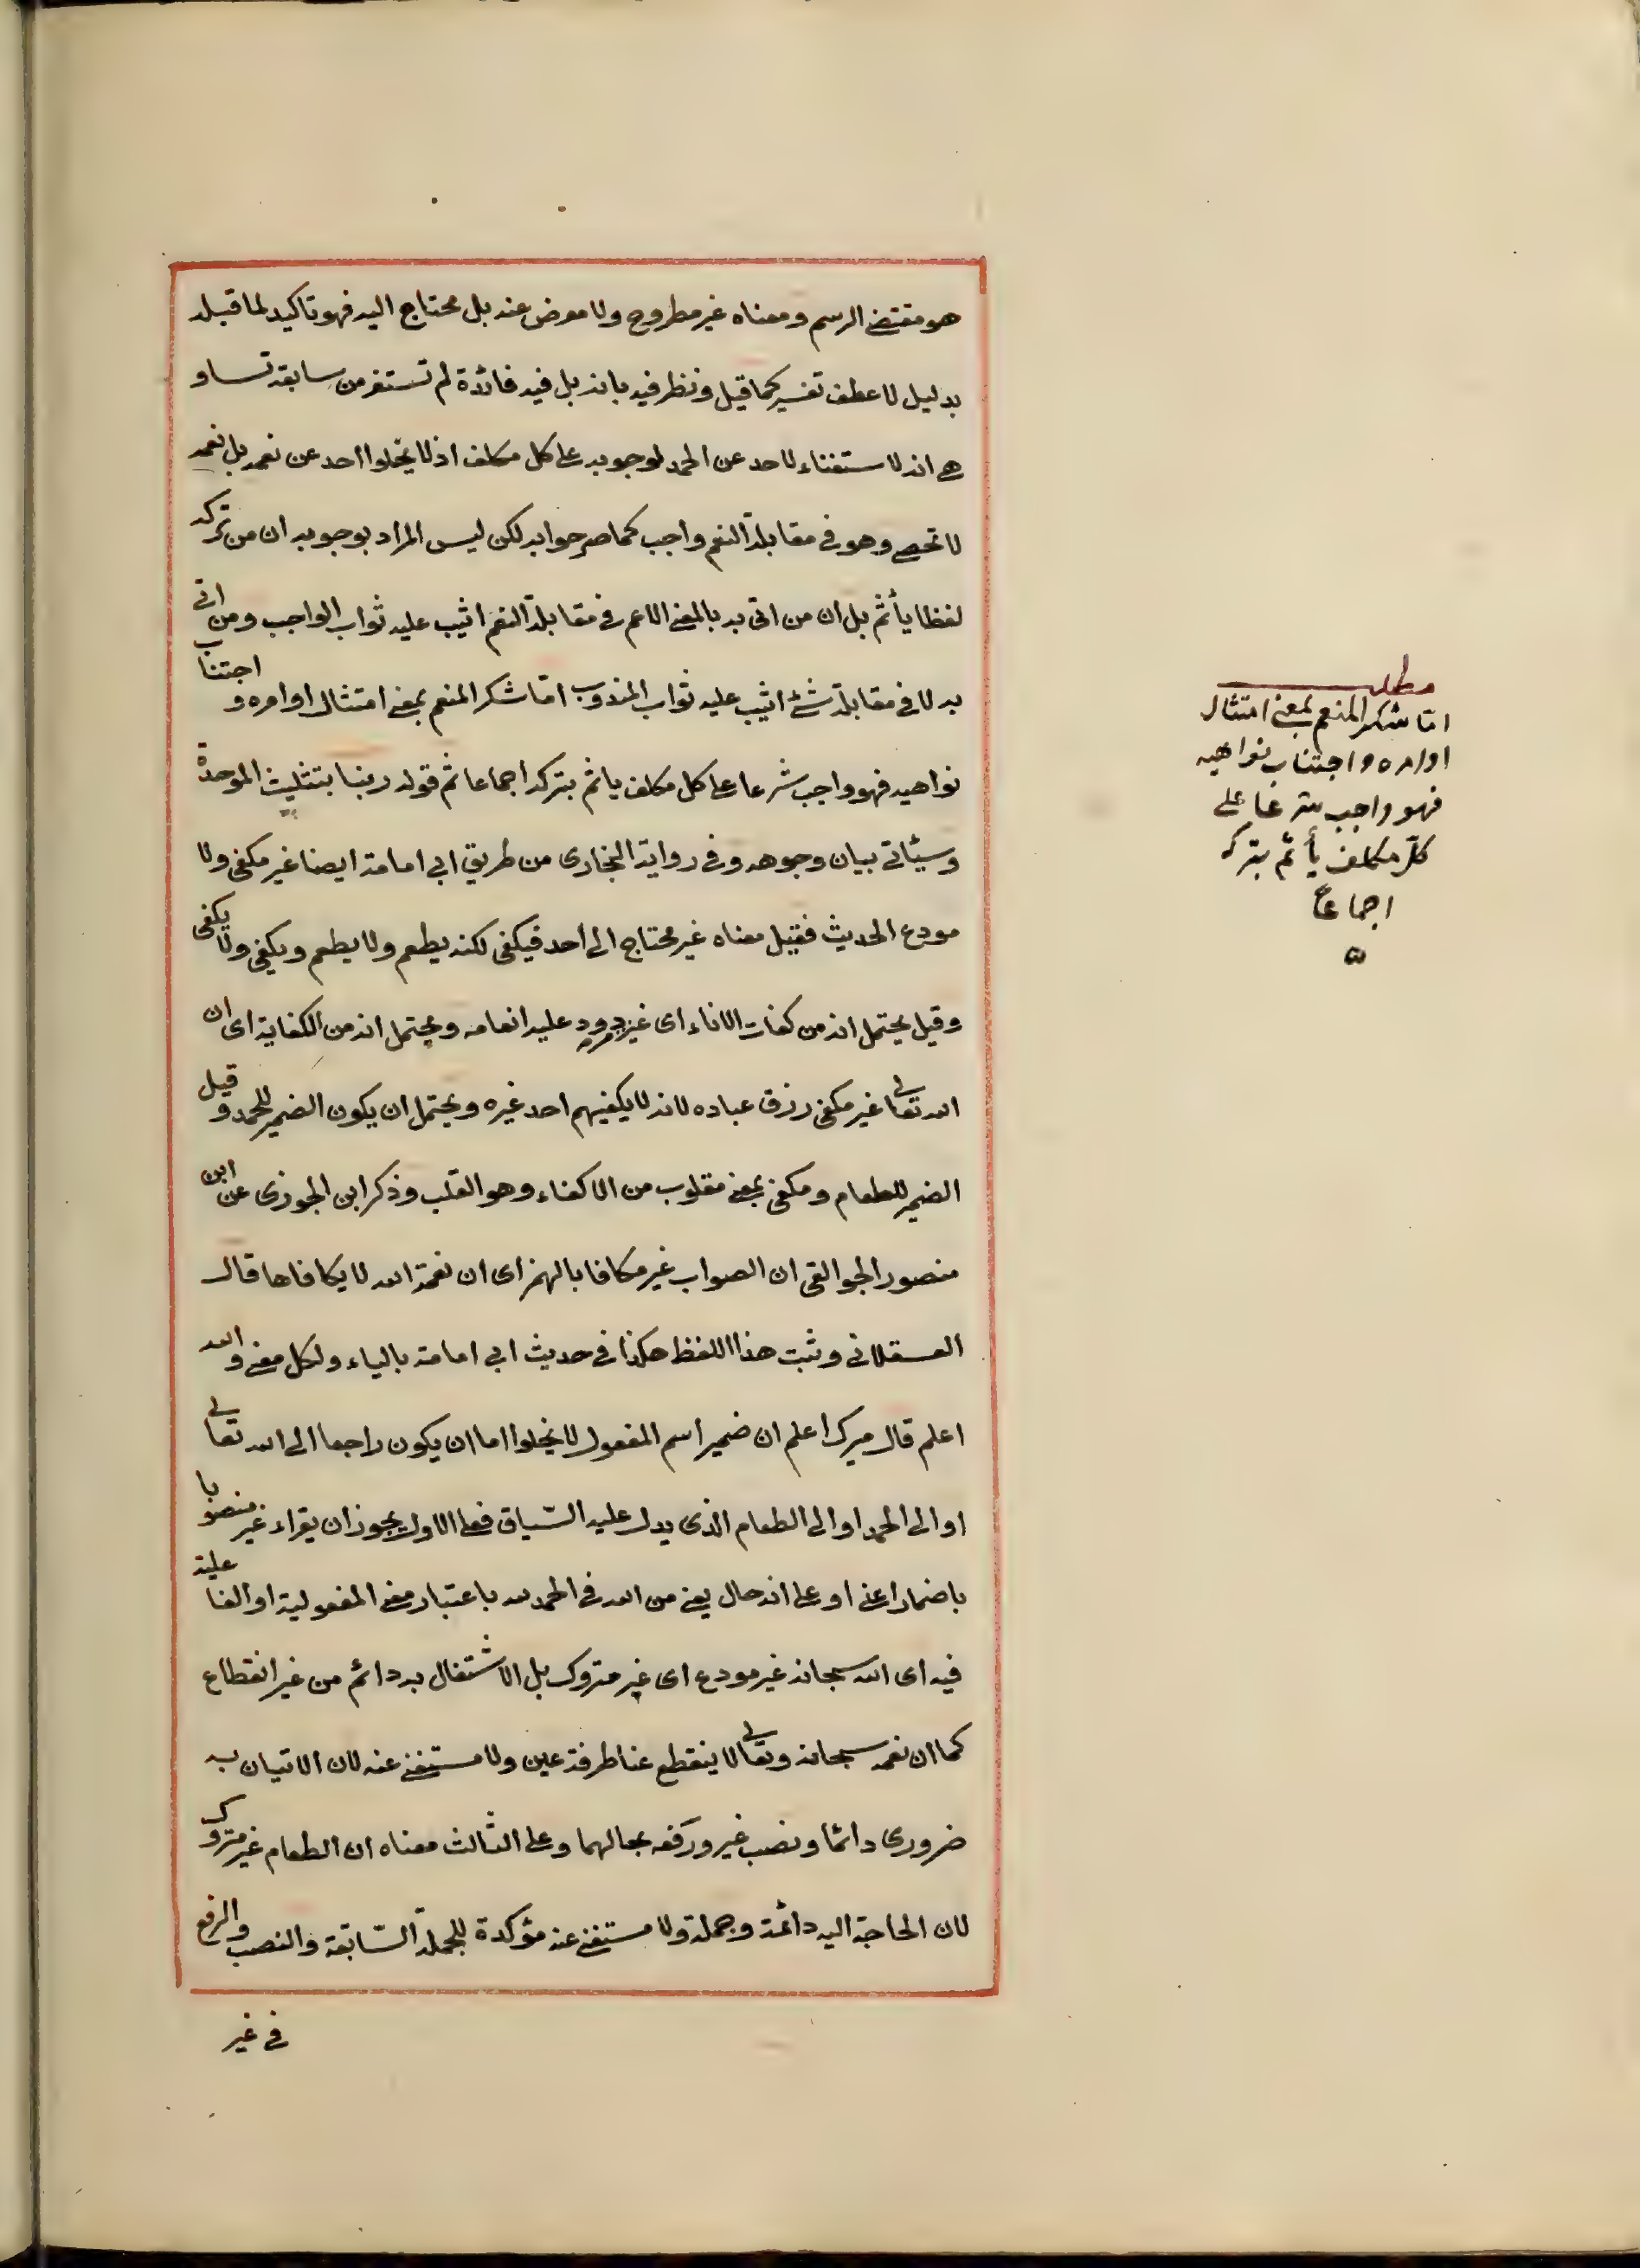 هو مقتضى الرسم ومعناه غير مطروح ولا معرض عنه بل محتاج اليه فهو تاكيد لما قبله
بدليل لا عطف تفسير كما قيل ونظر فيه بانه بل فيه فائدة لم تستفد من سابقه نسا و
هى انه لا ستغناء لاحد عن الحمد لوجوبه على كل مكلف اذ لا يخلوا احد عن نعمه بل نعمه
لا تحصى وهو فى مقابلة النعم واجب كما صرحوا به لكن ليس المراد بوجوبه ان من تركه
لفظا يأثم بل ان من اتى به بالمعنى الاعم فى مقابلة النعم اثيب عليه ثواب الواجب ومن اتى
به لا فى مقابلة شئ اثيب عليه ثواب المندوب امّا شكر المنعم بمعنى امتثال اوامره و اجتناب
نواهيه فهو واجب شرعا على كل مكلف ياثم بتركه اجماعا ثم قوله ربنا بتثليث الموحدة
وسيئاتى بيان وجوهه وفى رواية البخارى من طريق ابى امامة ايضا غير مكفى ولا
مودع الحديث فقيل معناه غير محتاج الى احد فيكفى لكنه يطعم ولا يطعم ويكفى ولا يكفى
وقيل يحتمل انه من كفات الاناء اى غير مردود عليه انعامه ويحتمل انه من الكفاية اى ان
الله تعالى غير مكفى رزق عباده لانه لا يكفيهم احد غيره ويحتمل ان يكون الضمير للحمد و قيل
الضمير للطعام ومكفى بمعنى مقلوب من الاكفاء وهو القلب وذكر ابن الجوزى عن ابن
منصور الجوالقى ان الصواب غير مكافا بالهمز اى ان نعمة الله لا يكافاها قال
العسقلانى وثبت هذا اللفظ هكذا فى حديث ابى امامة بالياء ولكل معنى والله
اعلم قال ميرك اعلم ان ضمير اسم المفعول لا يخلوا اما ان يكون راجعا الى الله تعالى
او الى الحمد او الى الطعام الذى يدل عليه السّياق فعلى الاول يجوز ان يقراء غير منصوبا
باضمار اعنى او على انه حال يعنى من الله فى الحمد لله باعتبار معنى المفعولية او الفاعلية
فيه اى الله سبحانه غير مودع اى غير متروك بل الاشتغال به دائم من غير انقطاع
كما ان نعمه سبحانه وتعالى لا ينقطع عنا طرفة عين ولا مستغنى عنه لان الاتيان به
ضرورى دائما ونصب غير ورفعه بحالهما وعلى الثالث معناه ان الطعام غير متروك
لان الحاجة اليه دائمة وجملة ولا مستغنى عنه مؤكدة للجملة السّابقة والنصب والرفع
فى غير
مطلب
امّا شكر المنعم بمعنى امتثال
اوامره واجتناب نواهيه
فهو واجب شرعًا على
كلّ مكلف يأثم بتركه
اجماعًا